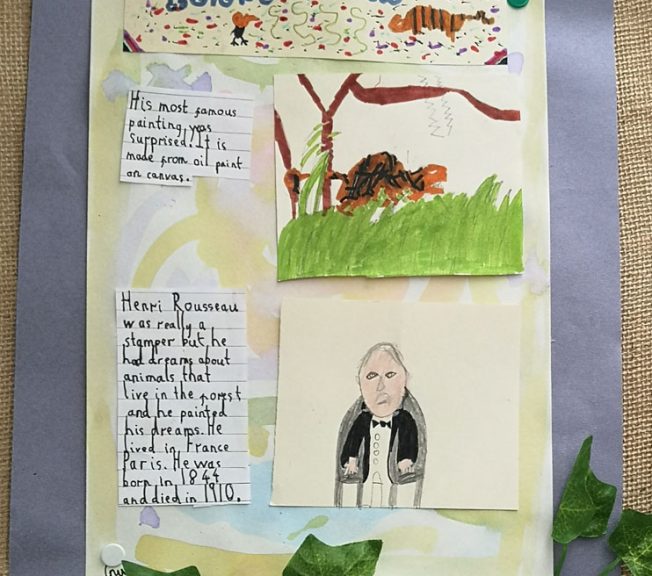 His most famous
painting was
Surprised! It is
made from oil paint
on canvas.
Henri Rousseau
was really a
stamper but he
had dreams about
animals that
live in the forest
and he painted
his dreams. He
lived in France
Paris. He was
born in 1844
and died in 1910.